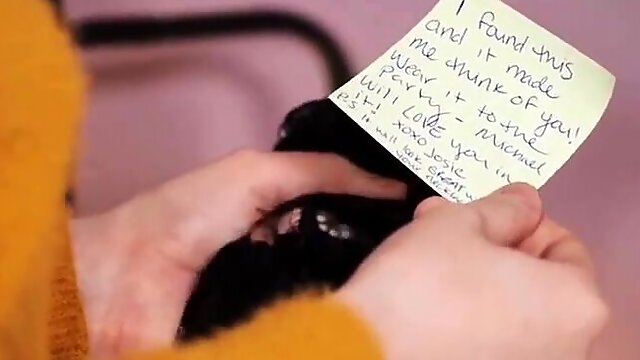 I found this
and it made
me think of you!
Wear it to the
party - Michael
will LOVE you in
it! xoxo Josie
P.S. it will look great w/
your